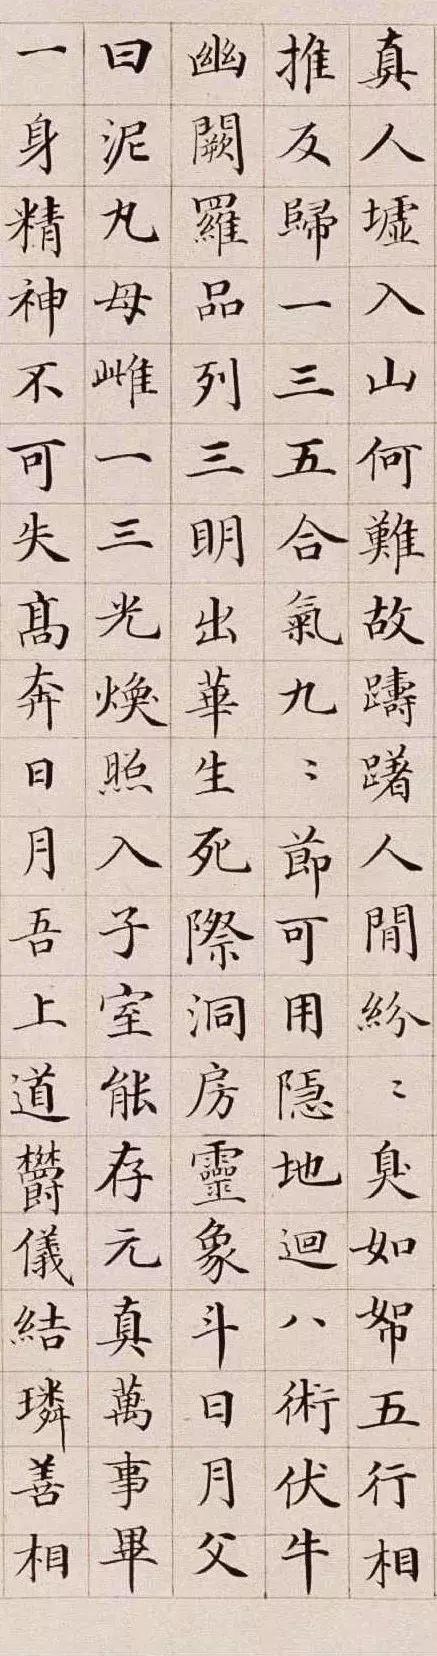 真人墟入山何難故躊躇人閒紛〻臭如帤五行相
推反歸一三五合氣九〻節可用隱地迴八術伏牛
幽闕羅品列三明出華生死際洞房靈象斗日月父
曰泥丸母雌一三光煥照入子室能存元真萬事畢
一身精神不可失髙奔日月吾上道欝儀結璘善相